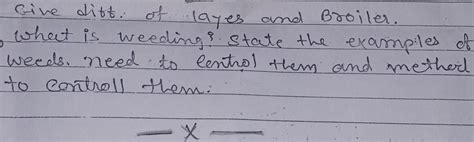 Give diff. of layes and Broiler.
What is weeding? State the examples of
weeds. need to control them and method
to controll them.
— x —